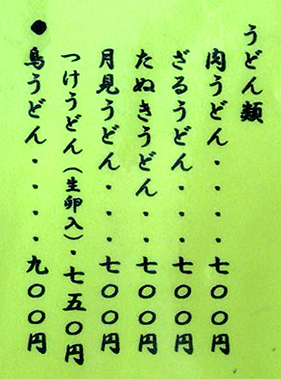 うどん類
肉うどん・・・・七〇〇円
ざるうどん・・・七〇〇円
たぬきうどん・・七〇〇円
月見うどん・・・七〇〇円
つけうどん（生卵入）・七五〇円
●鳥うどん・・・・九〇〇円